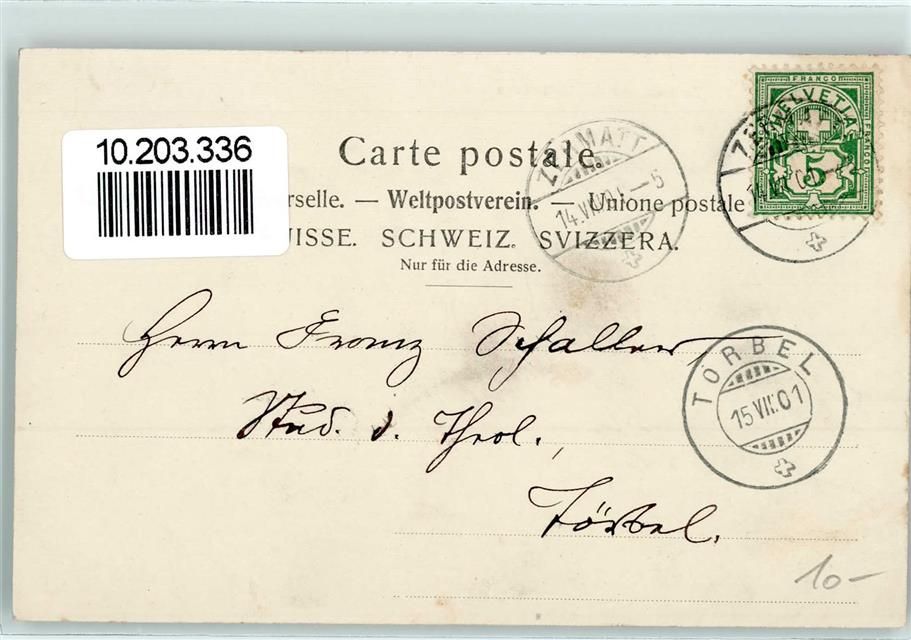 10.203.336
Carte postale.
rselle. — Weltpostverein. — Unione postale
ISSE. SCHWEIZ. SVIZZERA.
Nur für die Adresse.
FRANCO
HELVETIA
FRANCO
5
ZERMATT
14.VII.01.–5
TÖRBEL
15.VII.01
Herrn Franz Schaller
Stud. d. Theol.,
Törbel.
10-